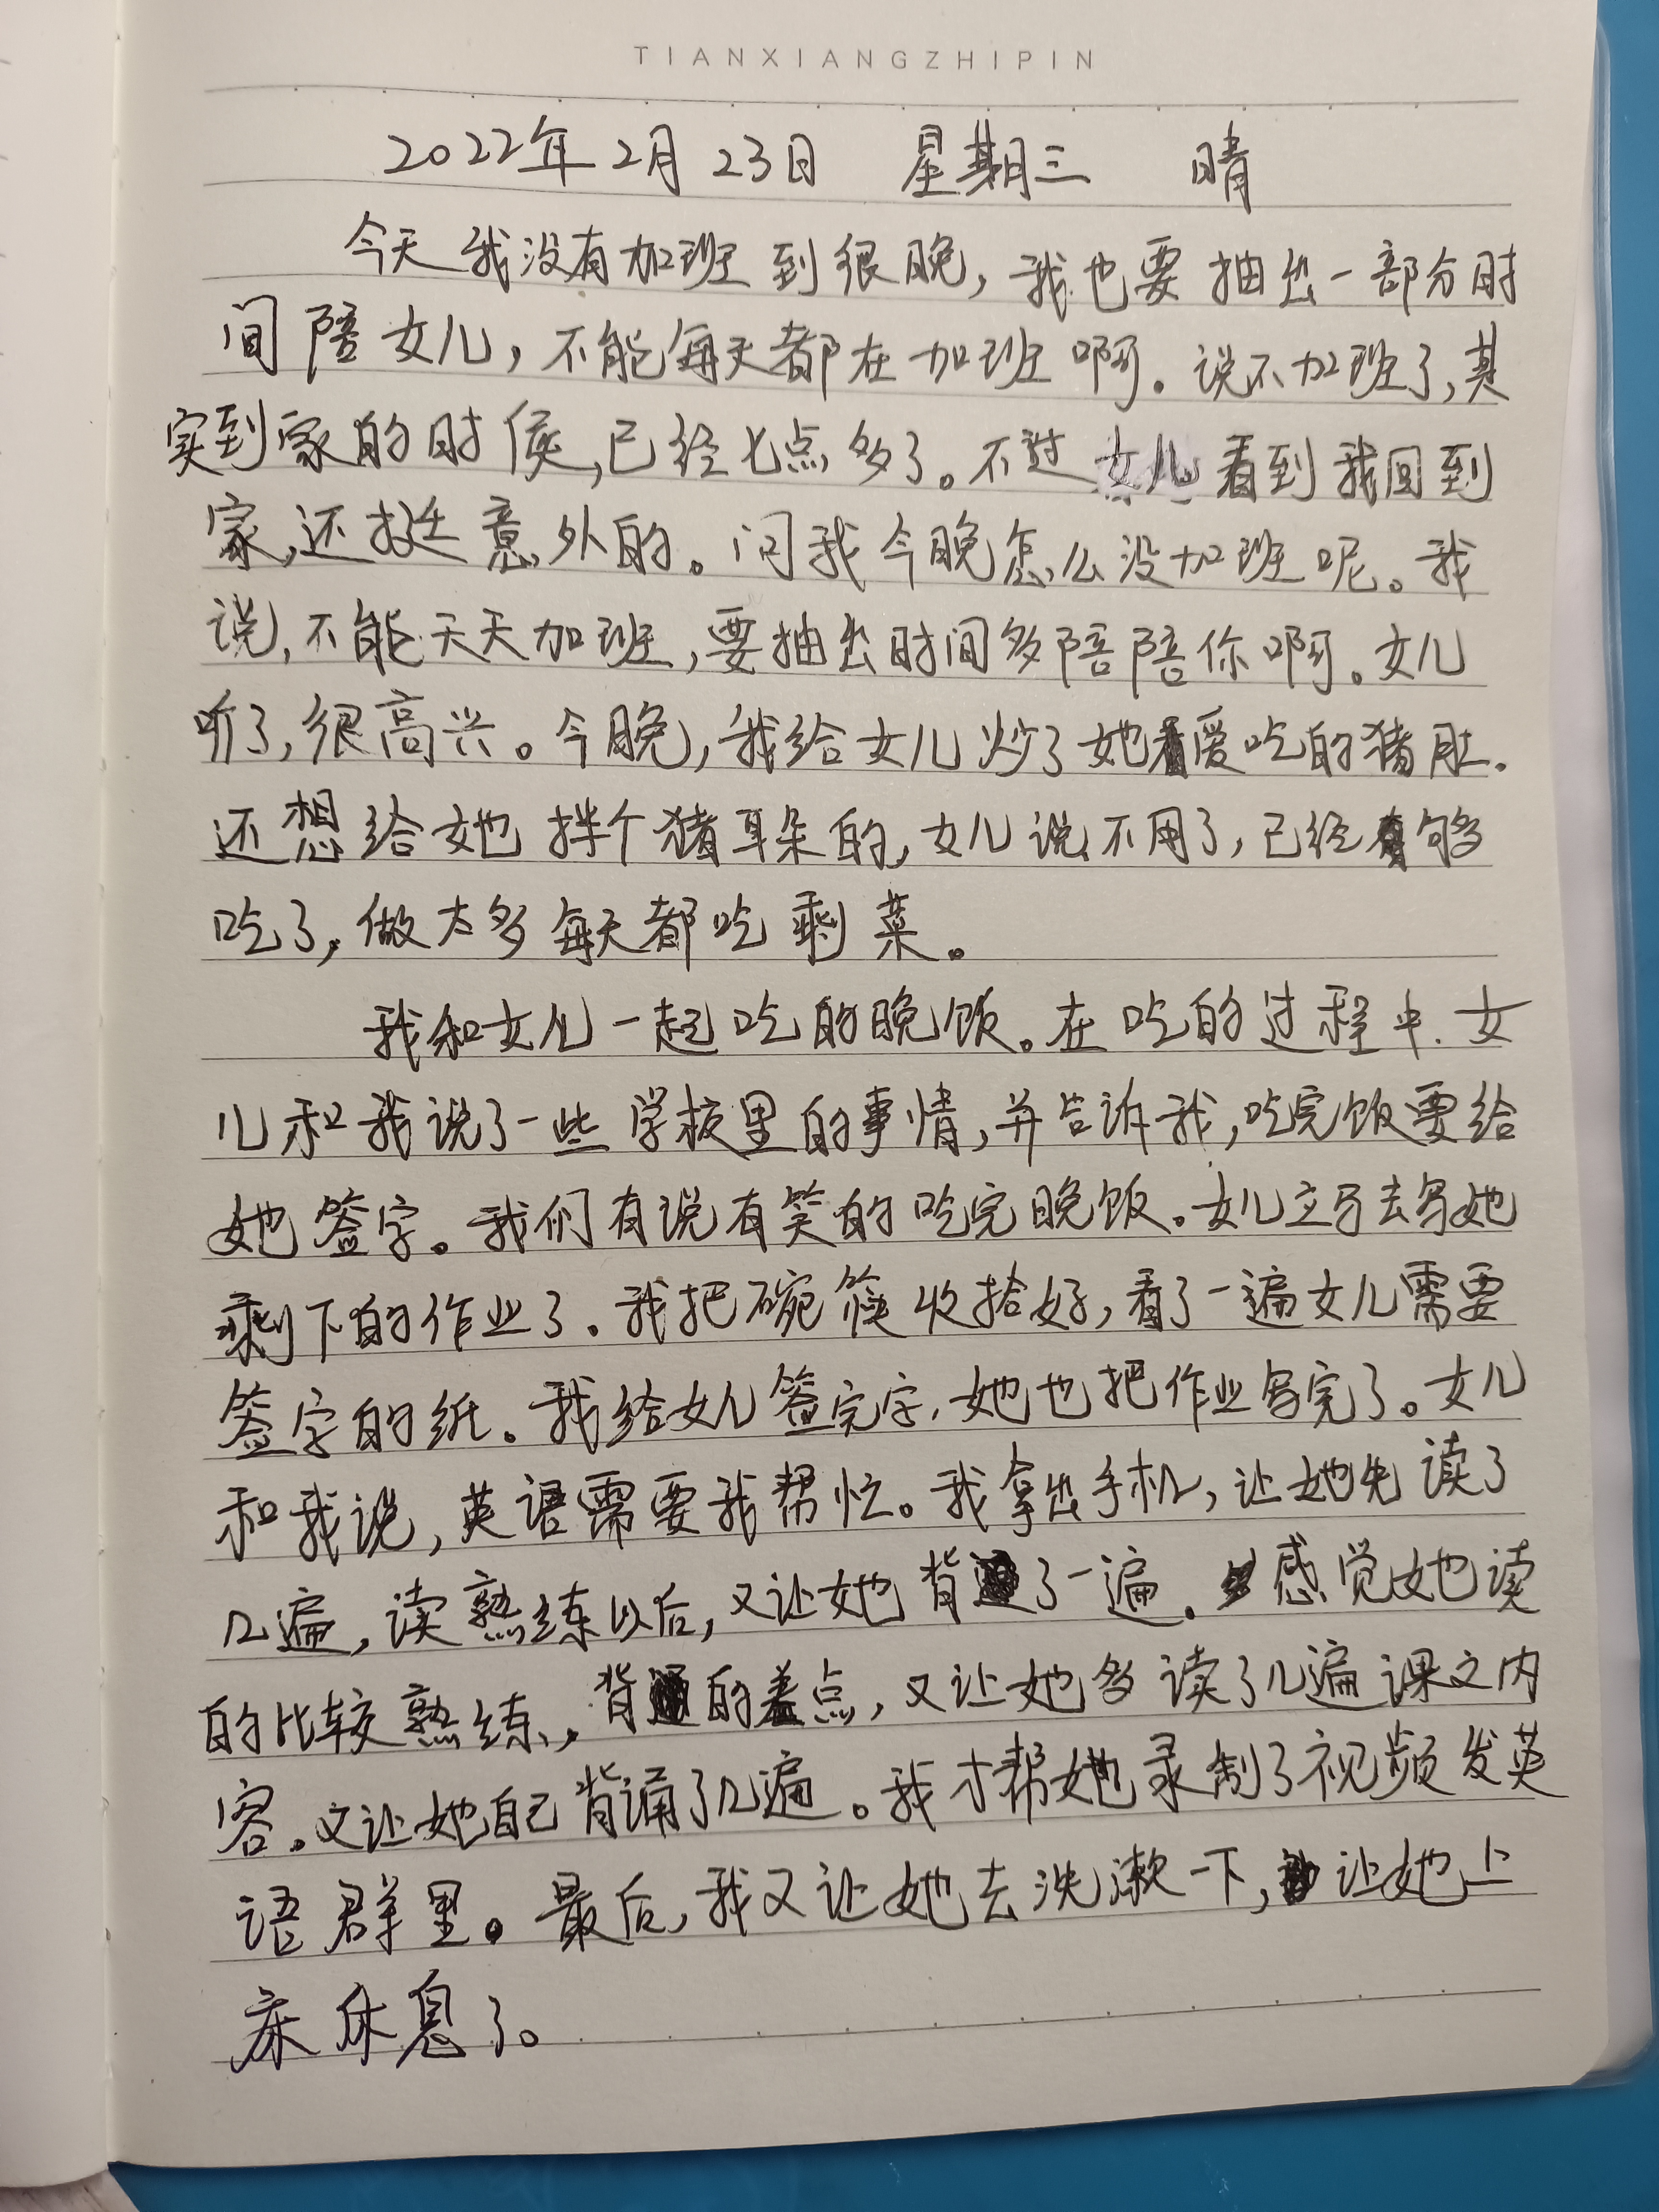 TIANXIANGZHIPIN
2022年2月23日 星期三 晴
今天我没有加班到很晚，我也要抽出一部分时
间陪女儿，不能每天都在加班啊。说不加班了，其
实到家的时侯，已经七点多了。不过女儿看到我回到
家，还挺意外的。问我今晚怎么没加班呢。我
说，不能天天加班，要抽出时间多陪陪你啊。女儿
听了，很高兴。今晚，我给女儿炒了她爱吃的猪肚。
还想给她拌个猪耳朵的，女儿说不用了，已经够
吃了，做太多每天都吃剩菜。
我和女儿一起吃的晚饭。在吃的过程中，女
儿和我说了一些学校里的事情，并告诉我，吃完饭要给
她签字。我们有说有笑的吃完晚饭。女儿立马去写她
剩下的作业了。我把碗筷收拾好，看了一遍女儿需要
签字的纸。我给女儿签完字，她也把作业写完了。女儿
和我说，英语需要我帮忙。我拿出手机，让她先读了
几遍，读熟练以后，又让她背了一遍。感觉她读
的比较熟练，背的差点，又让她多读了几遍课文内
容。又让她自己背诵了几遍。我才帮她录制了视频发英
语群里。最后，我又让她去洗漱一下，让她上
床休息了。